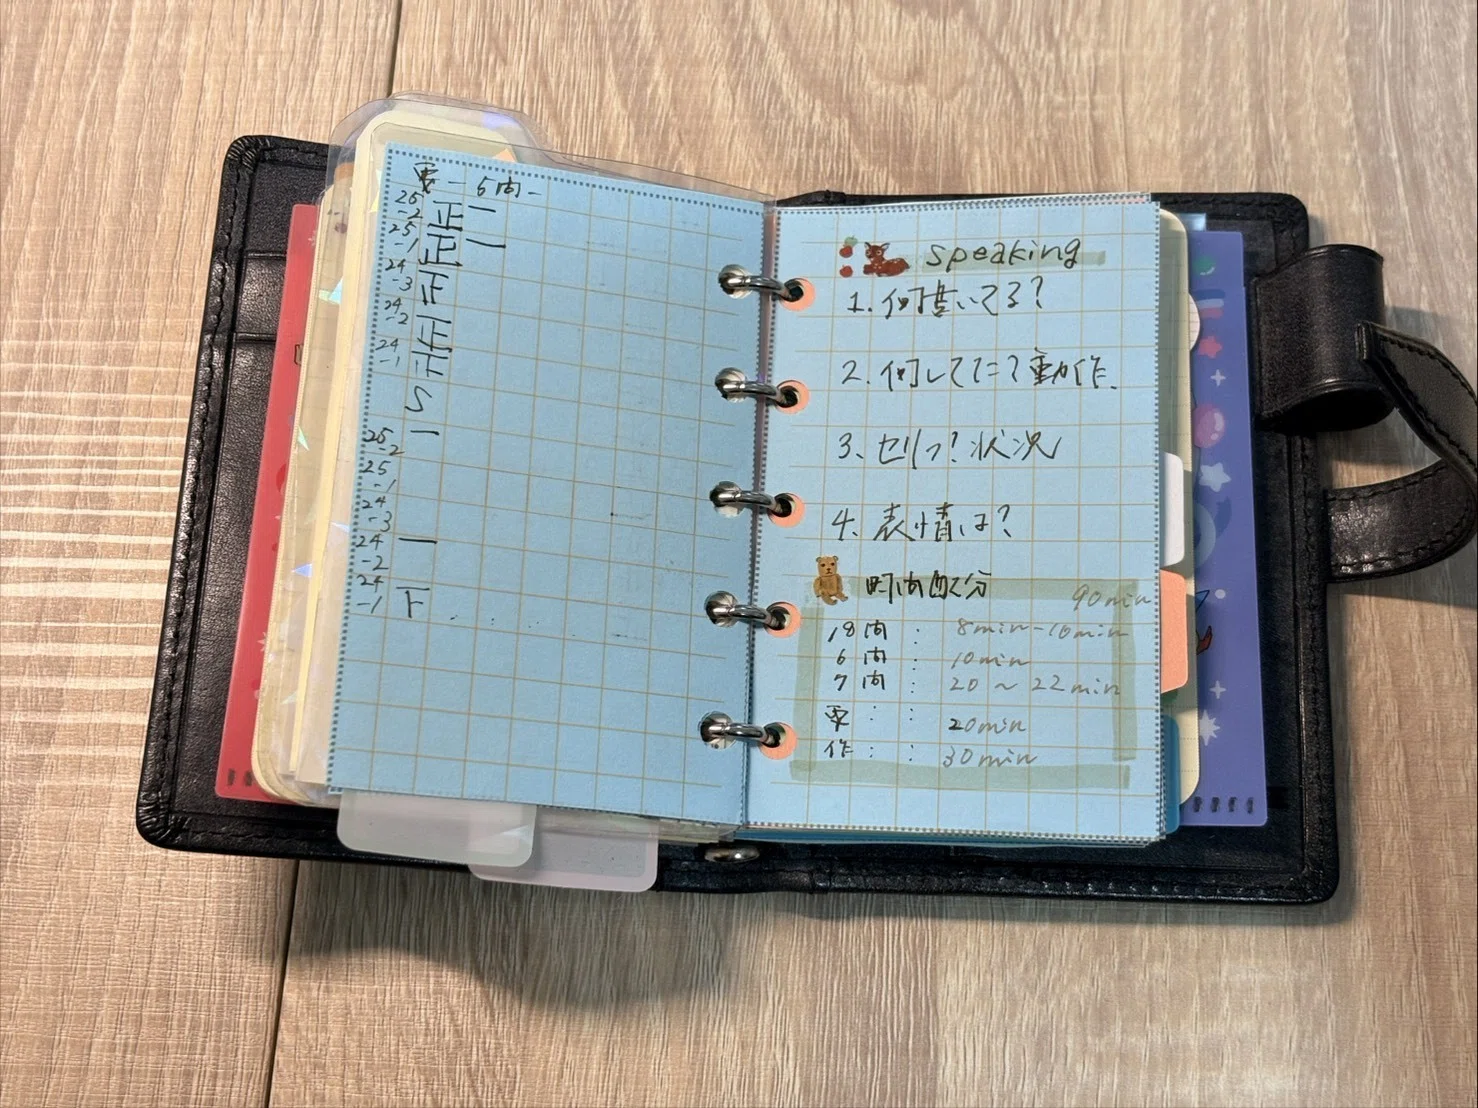 要 - 6問 -
25-2 正一
25-1 正一
24-3 正
24-2 正
24-1 正
S
25-2 一
25-1
24-3
24-2 一
24-1 下
speaking
1. 何書いてる?
2. 何してた? 動作
3. 状況
4. 表情は?
時間配分 90min
18問 : 8min-10min
6問 : 10min
7問 : 20〜22min
要 : : 20min
作 : : 30min